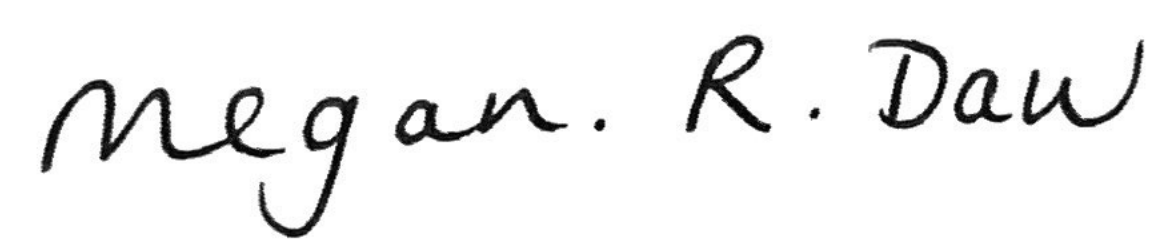 Megan. R. Daw